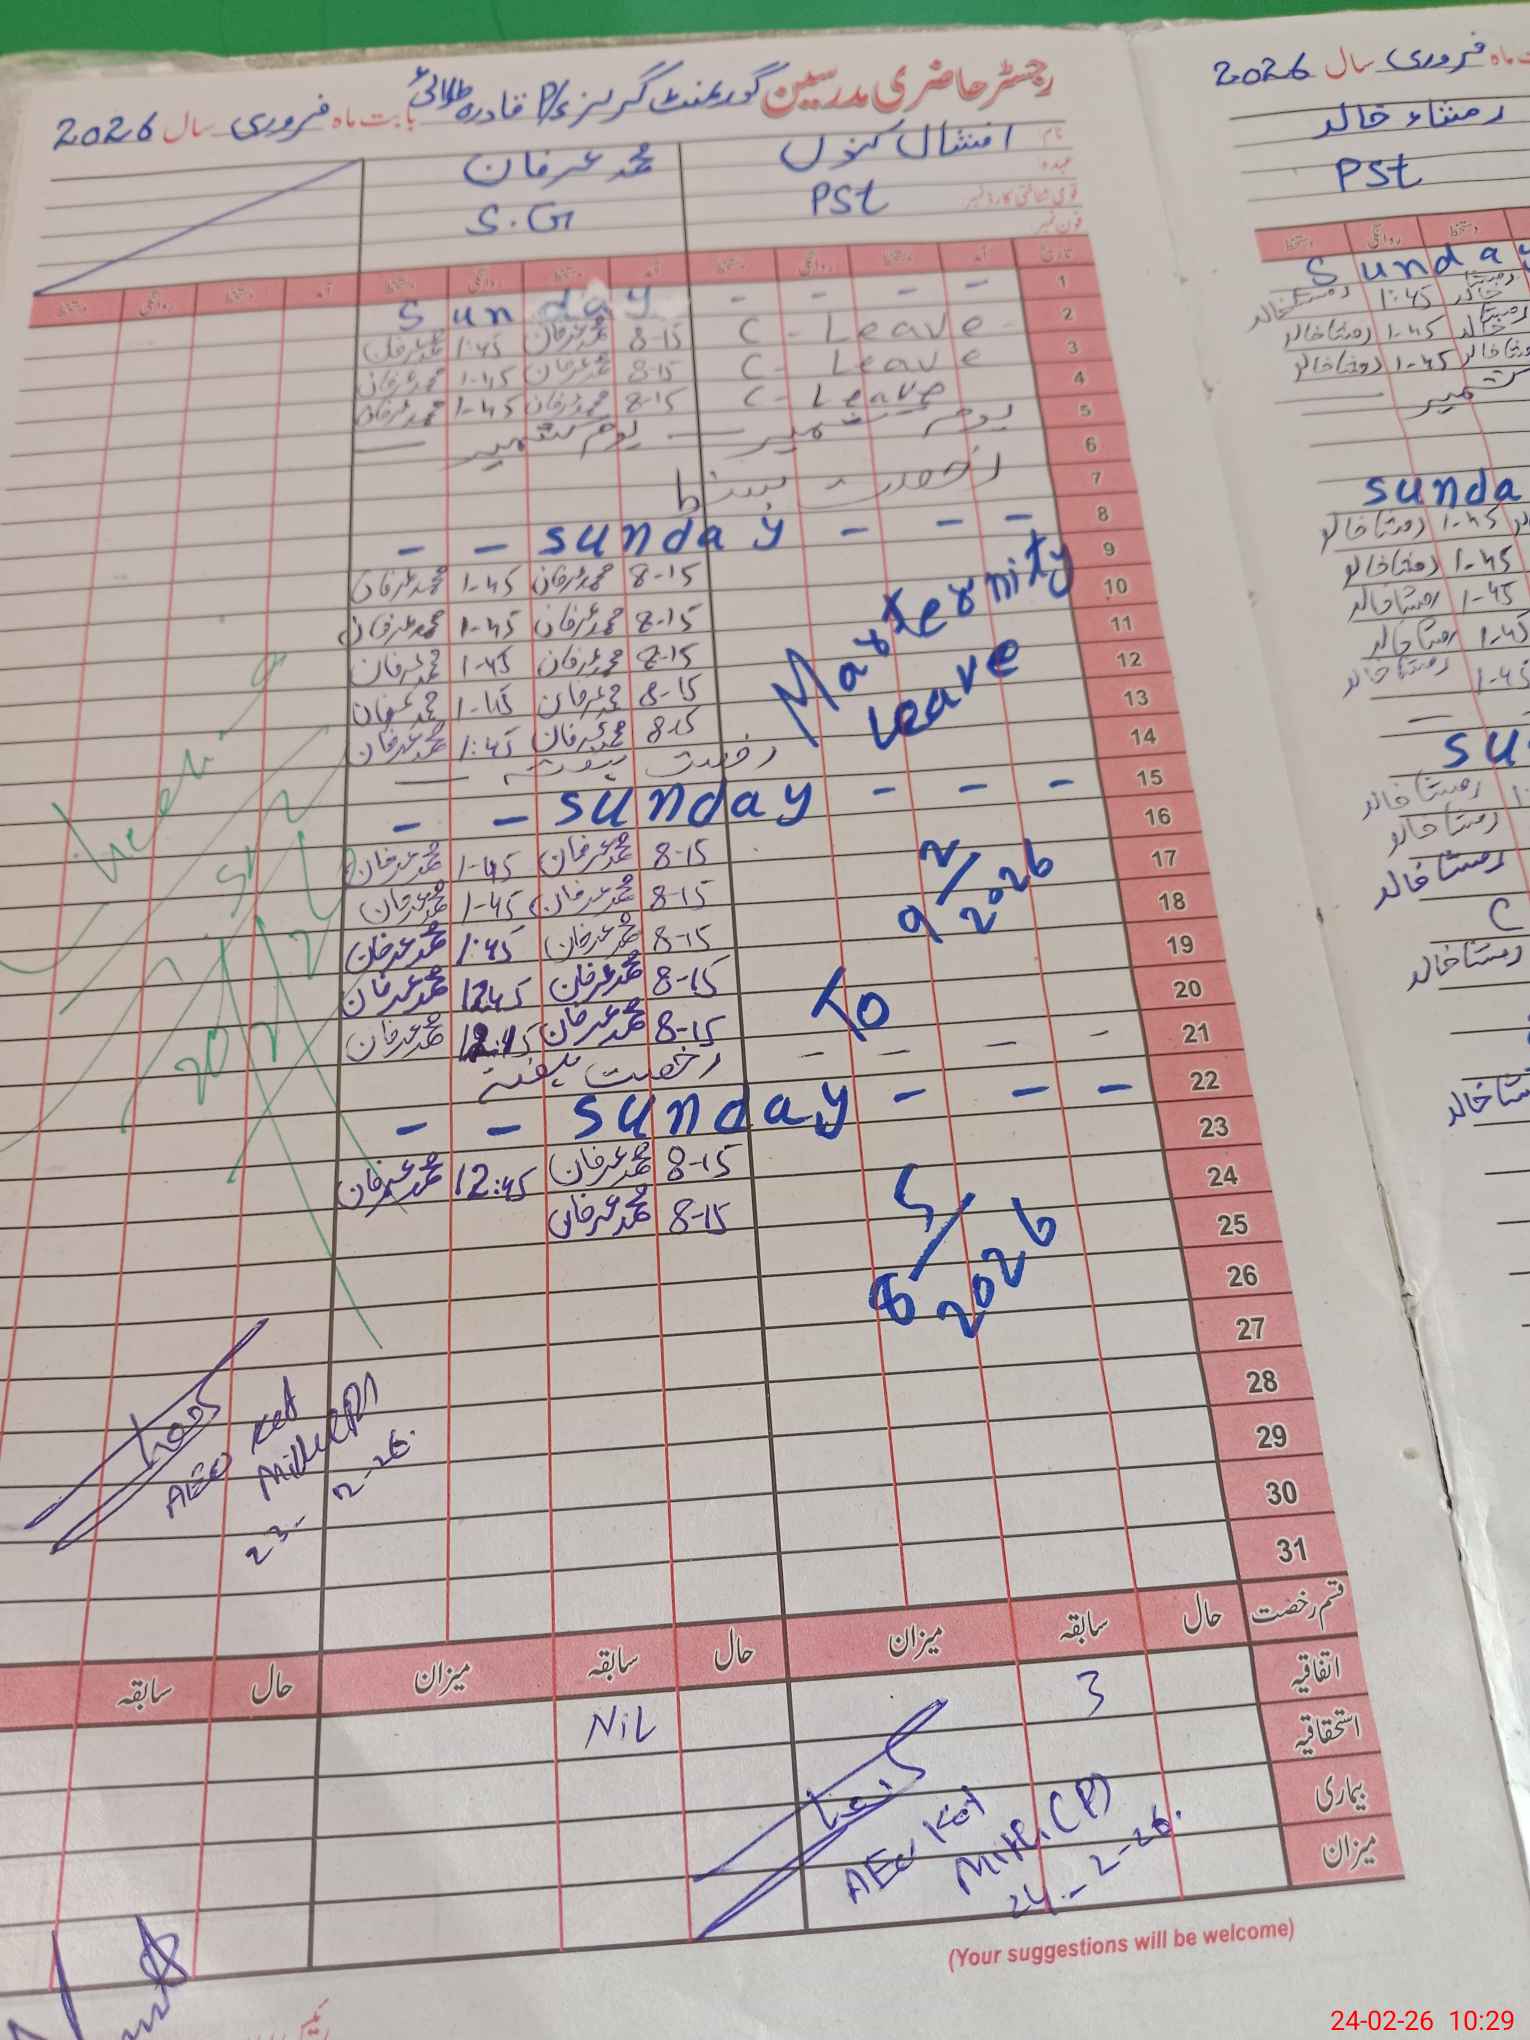 رجسٹر حاضری مدرسین گورنمنٹ گرلز P/S قادرہ طلائی بابت ماہ فروری سال 2026
نام افشال کنول محمد عرفان
عہدہ PST S.G
قومی شناختی کارڈ نمبر
فون نمبر
تاریخ آمد دستخط روانگی دستخط آمد دستخط روانگی دستخط آمد دستخط روانگی دستخط
1 - - - - Sunday
2 C - Leave - 8-15 محمد عرفان 1:45 محمد عرفان
3 C - Leave 8-15 محمد عرفان 1-45 محمد عرفان
4 C - Leave 8-15 محمد عرفان 1-45 محمد عرفان
5 یوم کشمیر — یوم کشمیر —
6
7 رخصت
8 - - Sunday - - -
9 8-15 محمد عرفان 1-45 محمد عرفان
10 8-15 محمد عرفان 1-45 محمد عرفان
11 8-15 محمد عرفان 1-45 محمد عرفان
12 8-15 محمد عرفان 1-45 محمد عرفان
13 8-15 محمد عرفان 1:45 محمد عرفان
Maternity
Leave
14 رخصت ہفتہ
15 - - Sunday - - -
16 8-15 محمد عرفان 1-45 محمد عرفان
17 8-15 محمد عرفان 1-45 محمد عرفان
18 8-15 محمد عرفان 1:45 محمد عرفان
19 8-15 محمد عرفان 12:45 محمد عرفان
20 8-15 محمد عرفان محمد عرفان
9/2 2026
To
21 - - - - رخصت ہفتہ
22 - - Sunday - - -
23 8-15 محمد عرفان 12:45 محمد عرفان
24 8-15 محمد عرفان
2026
25
26
27
28
29
30
31
AEO Kot
23-2-26.
قسم رخصت حال سابقہ میزان حال سابقہ میزان حال سابقہ
اتفاقیہ 3 NiL
استحقاقیہ
بیماری
میزان
AEO Kot
(P)
24-2-26.
(Your suggestions will be welcome)
فروری سال 2026
رمشاء خالد
PST
دستخط روانگی دستخط
Sunday
1:45
رمشا خالد 1-45
رمشا خالد 1-45
کشمیر
Sunda
رمشا خالد 1-45
رمشا خالد 1-45
رمشا خالد 1-45
رمشا خالد 1-45
رمشا خالد 1-45
Su
رمشا خالد
رمشا خالد
رمشا خالد
C
رمشا خالد
24-02-26 10:29